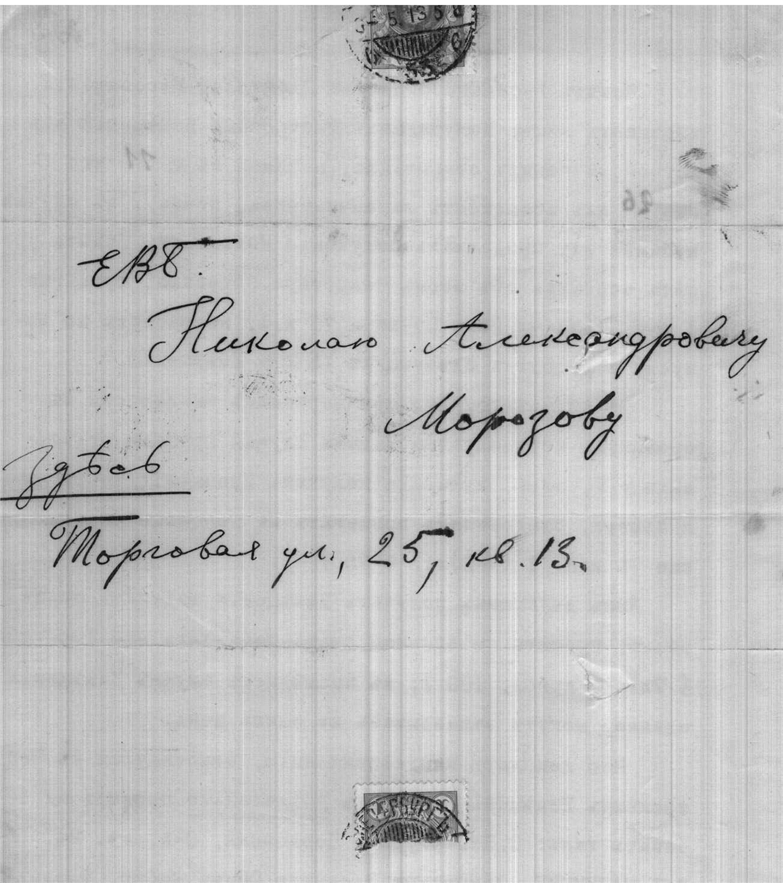 ЕВБ.
Николаю Александровичу
Морозову
Здѣсь
Торговая ул., 25, кв. 13.